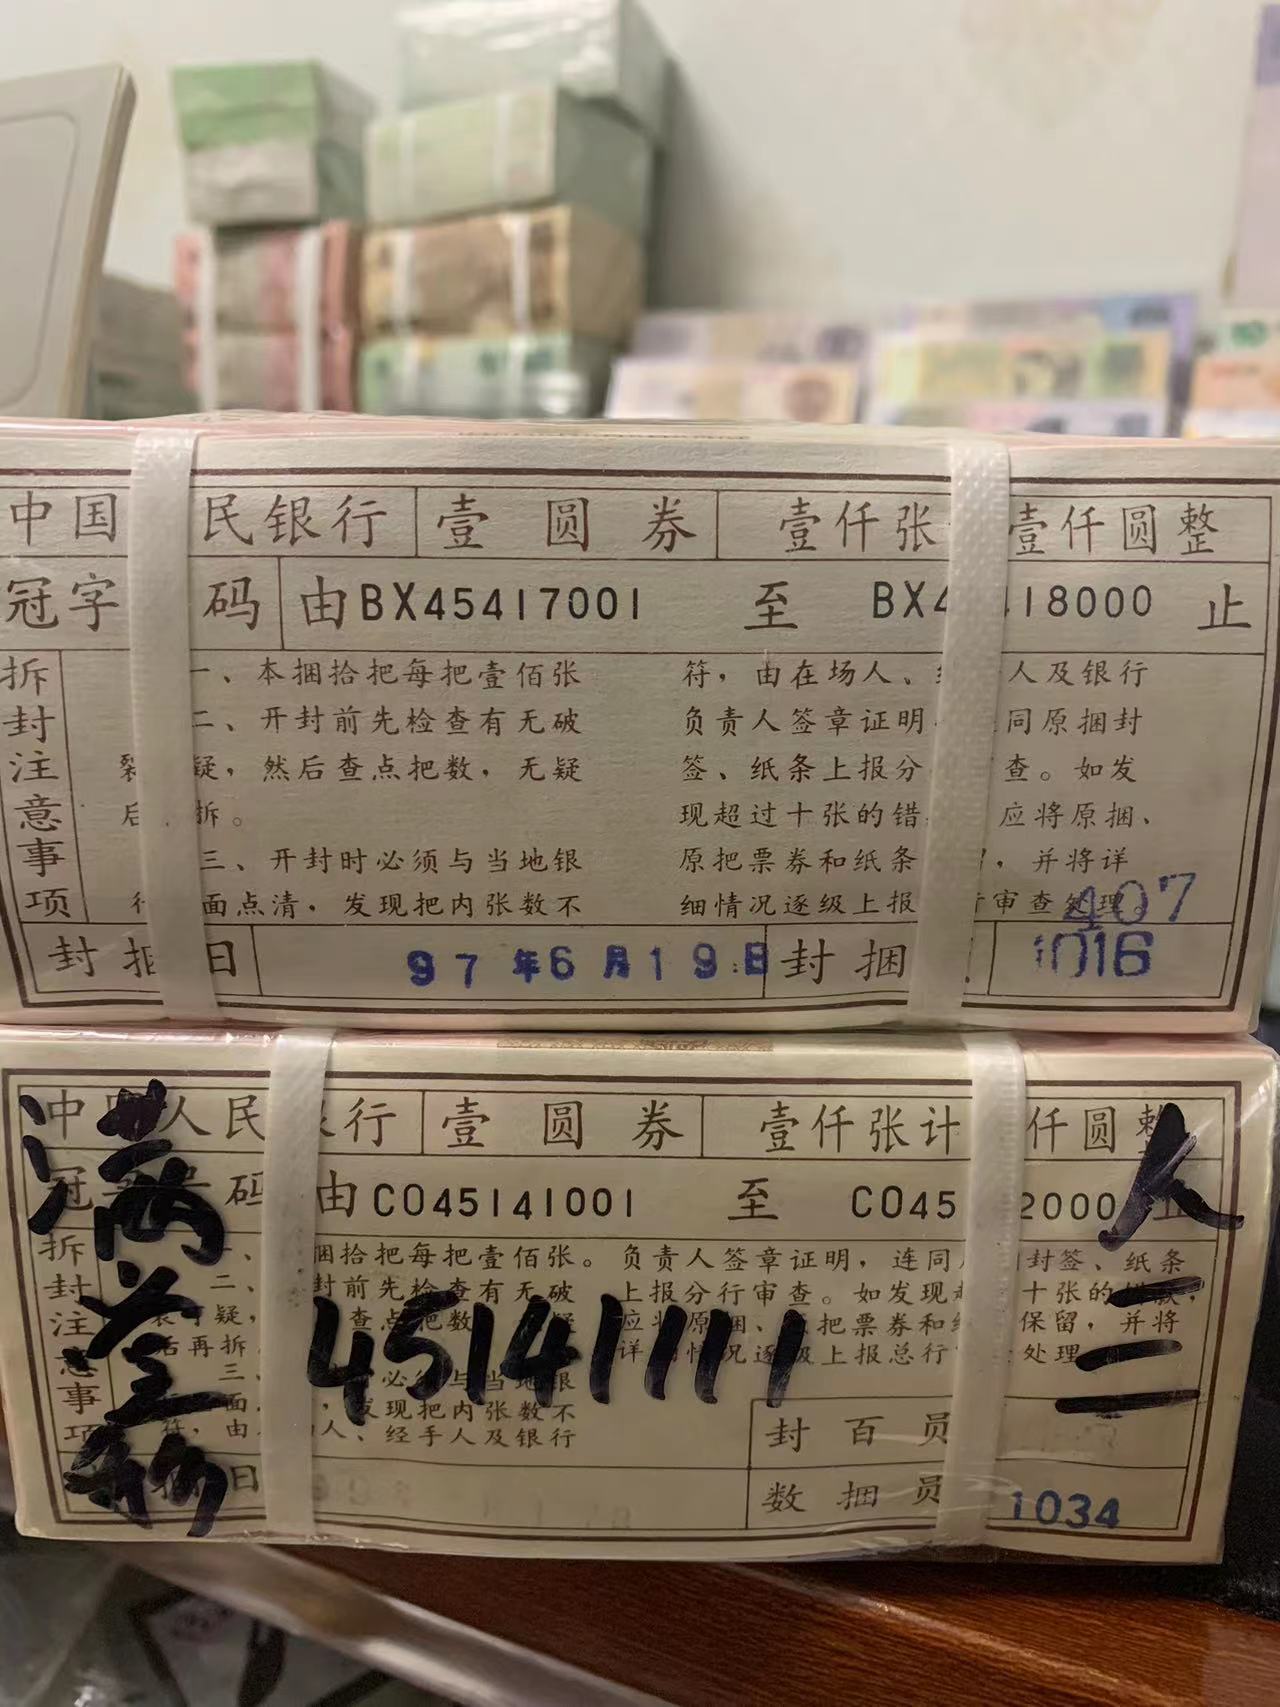 中国 民银行 壹圆券 壹仟张 壹仟圆整
冠字 码 由BX45417001 至 BX4 18000 止
拆封注意事项
一、本捆拾把每把壹佰张
二、开封前先检查有无破
裂 疑，然后查点把数，无疑
后 拆。
三、开封时必须与当地银
行 面点清，发现把内张数不
符，由在场人、 人及银行
负责人签章证明 同原捆封
签、纸条上报分 查。如发
现超过十张的错 应将原捆、
原把票券和纸条 ，并将详
细情况逐级上报 行审查处理。
407
封捆 日 97年6月19日 封捆 1016
中 人民 银行 壹圆券 壹仟张计 仟圆整
冠 码 由CO45141001 至 CO45 2000 止
拆封注意事项
一、 捆拾把每把壹佰张。
二、 封前先检查有无破
裂可疑， 查点把数 疑
后再拆
三、 必须与当地银
面 发现把内张数不
符，由 人、经手人及银行
负责人签章证明，连同 封签、纸条
上报分行审查。如发现超 十张的错款，
应将原捆、原把票券和纸 保留，并将
详细情况逐级上报总行 处理
封百员
日 数捆员 1034
满堂彩
45141111
人三二